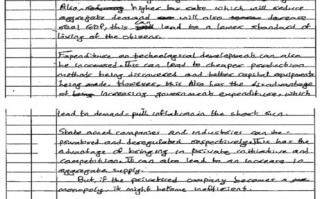 Also, higher tax rate which will reduce
aggregate demand will also decrease
real GDP, this can lead to a lower standard of
living of the citizens.
Expenditure on technological development can also
be increased. This can lead to cheaper production
methods being discovered and better capital equipments
being made. However, this also has the disadvantage
of increasing government expenditure, which
lead to demand-pull inflation in the short run.
State owned companies and industries can be
privatised and deregulated respectively. This has the
advantage of bringing in private initiative and
competition. It can also lead to an increase in
aggregate supply.
But, if the privatised company becomes a
monopoly, it might become inefficient.